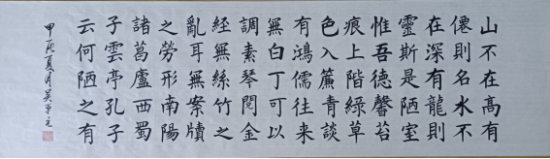 山不在高有
僊則名水不
在深有龍則
靈斯是陋室
惟吾德馨苔
痕上階綠草
色入簾青談
有鴻儒往來
無白丁可以
調素琴閱金
經無絲竹之
亂耳無案牘
之勞形南陽
諸葛廬西蜀
子雲亭孔子
云何陋之有
甲辰夏月吴